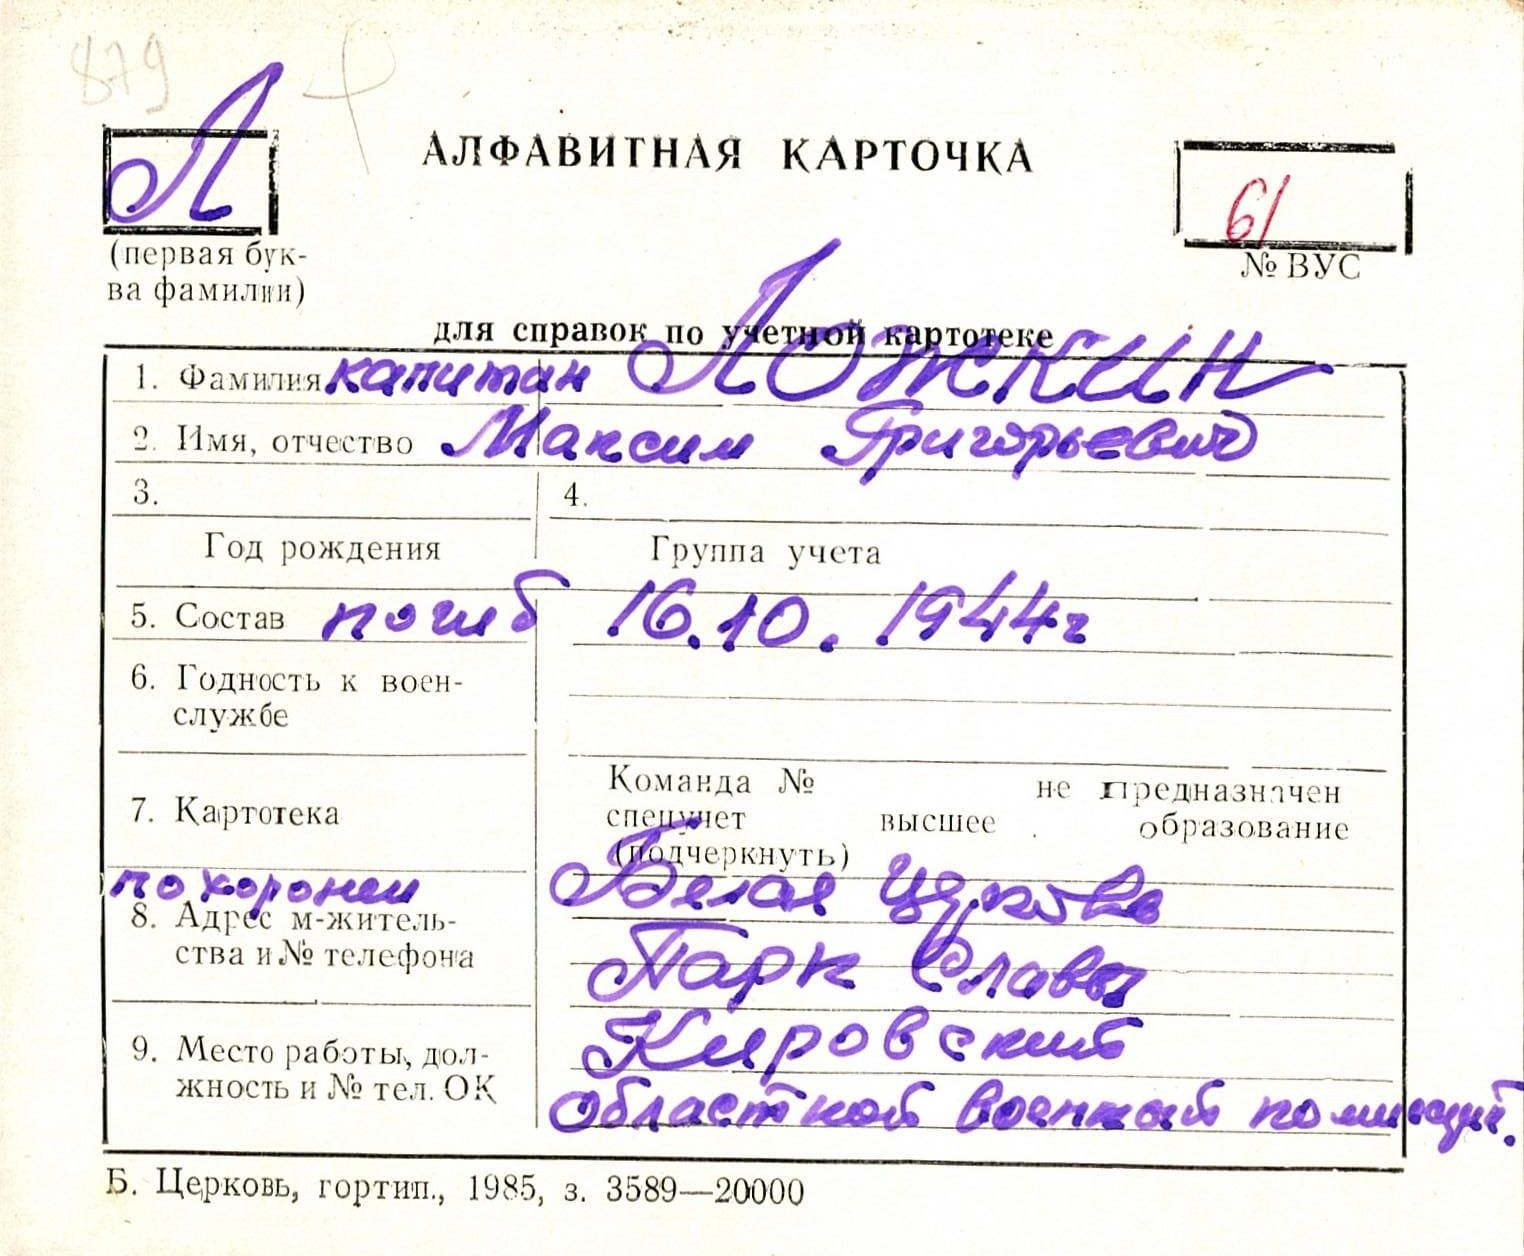 879
Л
АЛФАВИТНАЯ КАРТОЧКА
61
(первая бук-
ва фамилии)
№ ВУС
для справок по учетной картотеке
1. Фамилия капитан ЛОЖКИН
2. Имя, отчество Максим Григорьевич
3.
4.
Год рождения
Группа учета
5. Состав погиб 16.10.1944г
6. Годность к воен-
службе
7. Картотека
Команда № не предназначен
спецучет высшее образование
(подчеркнуть)
похоронен Белая Церковь
8. Адрес м-житель-
ства и № телефона
Парк Славы
9. Место работы, дол-
жность и № тел. ОК
Кировский
областной военный
Б. Церковь, гортип., 1985, з. 3589—20000